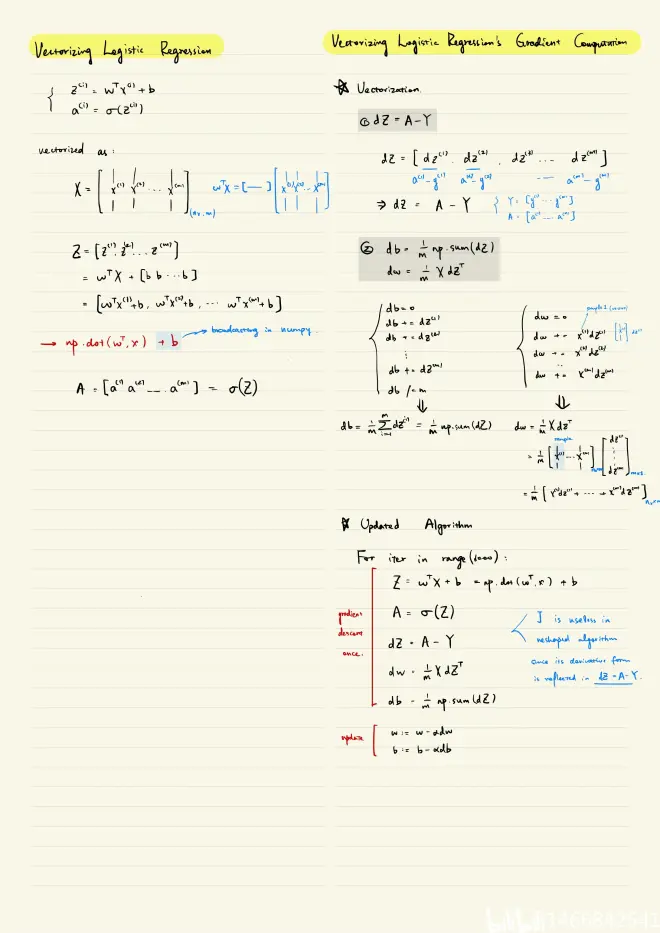 Vectorizing Logistic Regression
z^(i) = w^T x^(i) + b
a^(i) = σ(z^(i))
vectorized as:
X = [x^(1) x^(2) ... x^(m)] (nx, m)
w^T X = [—] [x^(1) x^(2) ... x^(m)]
Z = [z^(1) z^(2) ... z^(m)]
= w^T X + [b b ... b]
= [w^T x^(1)+b, w^T x^(2)+b, ... w^T x^(m)+b]
→ np.dot(w^T, x) + b
broadcasting in numpy
A = [a^(1) a^(2) ... a^(m)] = σ(Z)
Vectorizing Logistic Regression's Gradient Computation
☆ Vectorization.
① dZ = A-Y
dZ = [dz^(1) . dz^(2) . dz^(3) ... dz^(m)]
a^(1)-y^(1) a^(2)-y^(2) — a^(m)-y^(m)
⇒ dZ = A - Y
Y = [y^(1) ... y^(m)]
A = [a^(1) ... a^(m)]
② db = 1/m np.sum(dZ)
dw = 1/m X dZ^T
db = 0
db += dz^(1)
db += dz^(2)
⋮
db += dz^(m)
db /= m
⇓
db = 1/m Σ_{i=1}^{m} dz^(i) = 1/m np.sum(dZ)
dw = 0
dw += x^(1) dz^(1)
dw += x^(2) dz^(2)
⋮
dw += x^(m) dz^(m)
⇓
dw = 1/m X dZ^T
sample
= 1/m [x^(1) ... x^(m)] [dz^(1) ⋮ dz^(m)]
= 1/m [x^(1)dz^(1) + ... + x^(m)dz^(m)]
☆ Updated Algorithm
For iter in range(1000):
Z = w^T X + b = np.dot(w^T, x) + b
A = σ(Z)
dZ = A - Y
dw = 1/m X dZ^T
db = 1/m np.sum(dZ)
gradient
descent
once.
J is useless in
reshaped algorithm
once its derivative form
is reflected in dZ = A-Y.
update
w := w - αdw
b := b - αdb